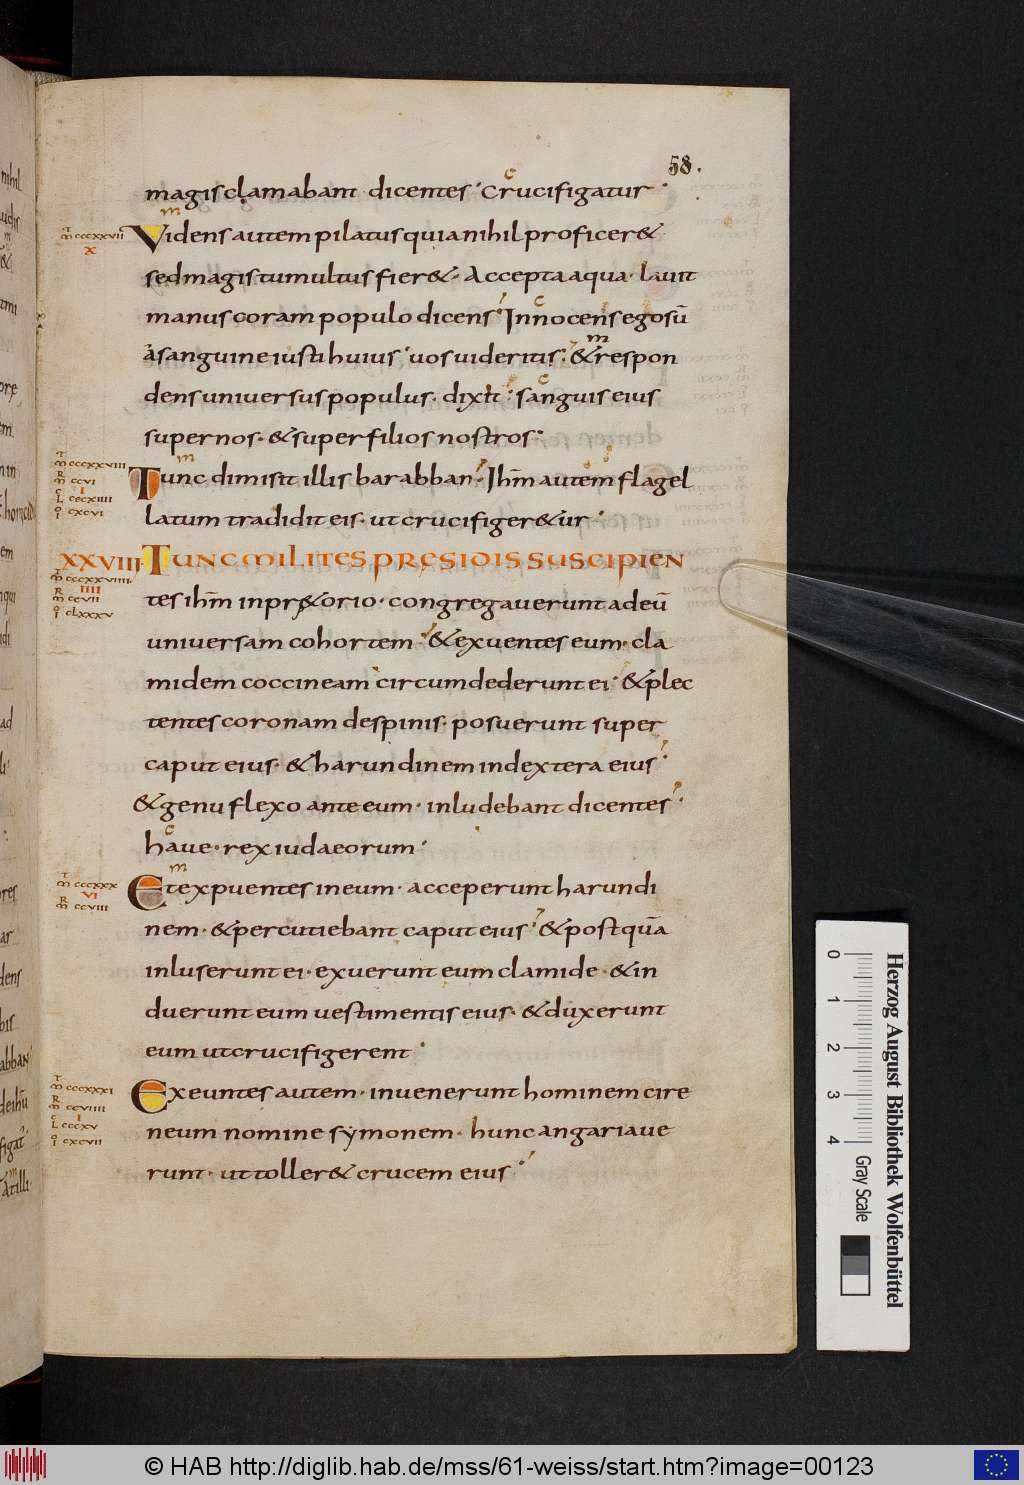 58.
magis clamabant · dicentes · crucifigatur ·
Videns autem pilatus quia nihil proficer&
sed magis tumultus fier& · Accepta aqua · lauit
manus coram populo dicens · Innocens ego sū
a sanguine iusti huius · uos uideritis · & respon
dens uniuersus populus · dixit · sanguis eius
super nos · & super filios nostros ·
Tunc dimisit illis barabban · Ihm̄ autem flagel
latum tradidit eis · ut crucifiger&ur ·
XXVIII Tunc milites presidis suscipien
tes ihm̄ in pr&orio · congregauerunt ad eū
uniuersam cohortem · & exuentes eum · cla
midem coccineam circumdederunt ei · & plec
tentes coronam de spinis · posuerunt super
caput eius · & harundinem in dextera eius ·
& genu flexo ante eum · inludebant dicentes ·
haue · rex iudaeorum ·
Et expuentes in eum · acceperunt harundi
nem · & percutiebant caput eius · & postquā
inluserunt ei · exuerunt eum clamide · & in
duerunt eum uestimentis eius · & duxerunt
eum ut crucifigerent ·
Exeuntes autem · inuenerunt hominem cire
neum nomine sẏmonem · hunc angariaue
runt · ut toller& crucem eius ·
0 1 2 3 4
Gray Scale
Herzog August Bibliothek Wolfenbüttel
© HAB http://diglib.hab.de/mss/61-weiss/start.htm?image=00123